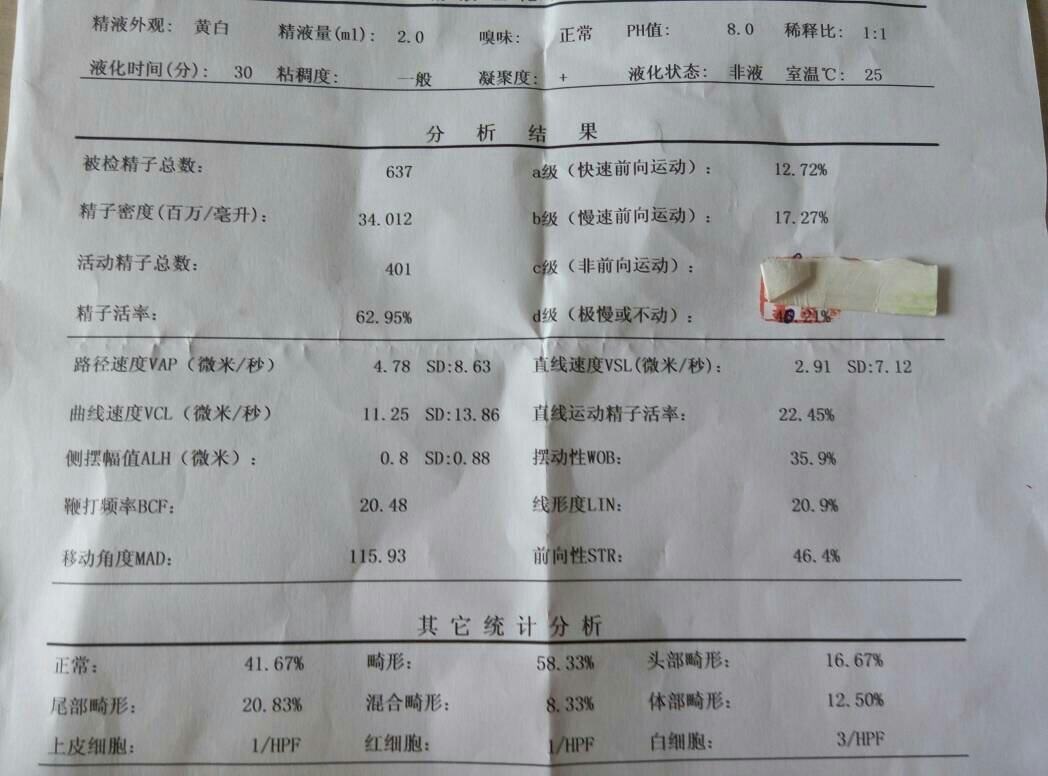 精液外观: 黄白 精液量(ml): 2.0 嗅味: 正常 PH值: 8.0 稀释比: 1:1
液化时间(分): 30 粘稠度: 一般 凝聚度: + 液化状态: 非液 室温℃: 25
分 析 结 果
被检精子总数: 637 a级(快速前向运动): 12.72%
精子密度(百万/毫升): 34.012 b级(慢速前向运动): 17.27%
活动精子总数: 401 c级(非前向运动):
精子活率: 62.95% d级(极慢或不动): .21%
路径速度VAP(微米/秒) 4.78 SD:8.63 直线速度VSL(微米/秒): 2.91 SD:7.12
曲线速度VCL(微米/秒) 11.25 SD:13.86 直线运动精子活率: 22.45%
侧摆幅值ALH(微米): 0.8 SD:0.88 摆动性WOB: 35.9%
鞭打频率BCF: 20.48 线形度LIN: 20.9%
移动角度MAD: 115.93 前向性STR: 46.4%
其它统计分析
正常: 41.67% 畸形: 58.33% 头部畸形: 16.67%
尾部畸形: 20.83% 混合畸形: 8.33% 体部畸形: 12.50%
上皮细胞: 1/HPF 红细胞: 1/HPF 白细胞: 3/HPF